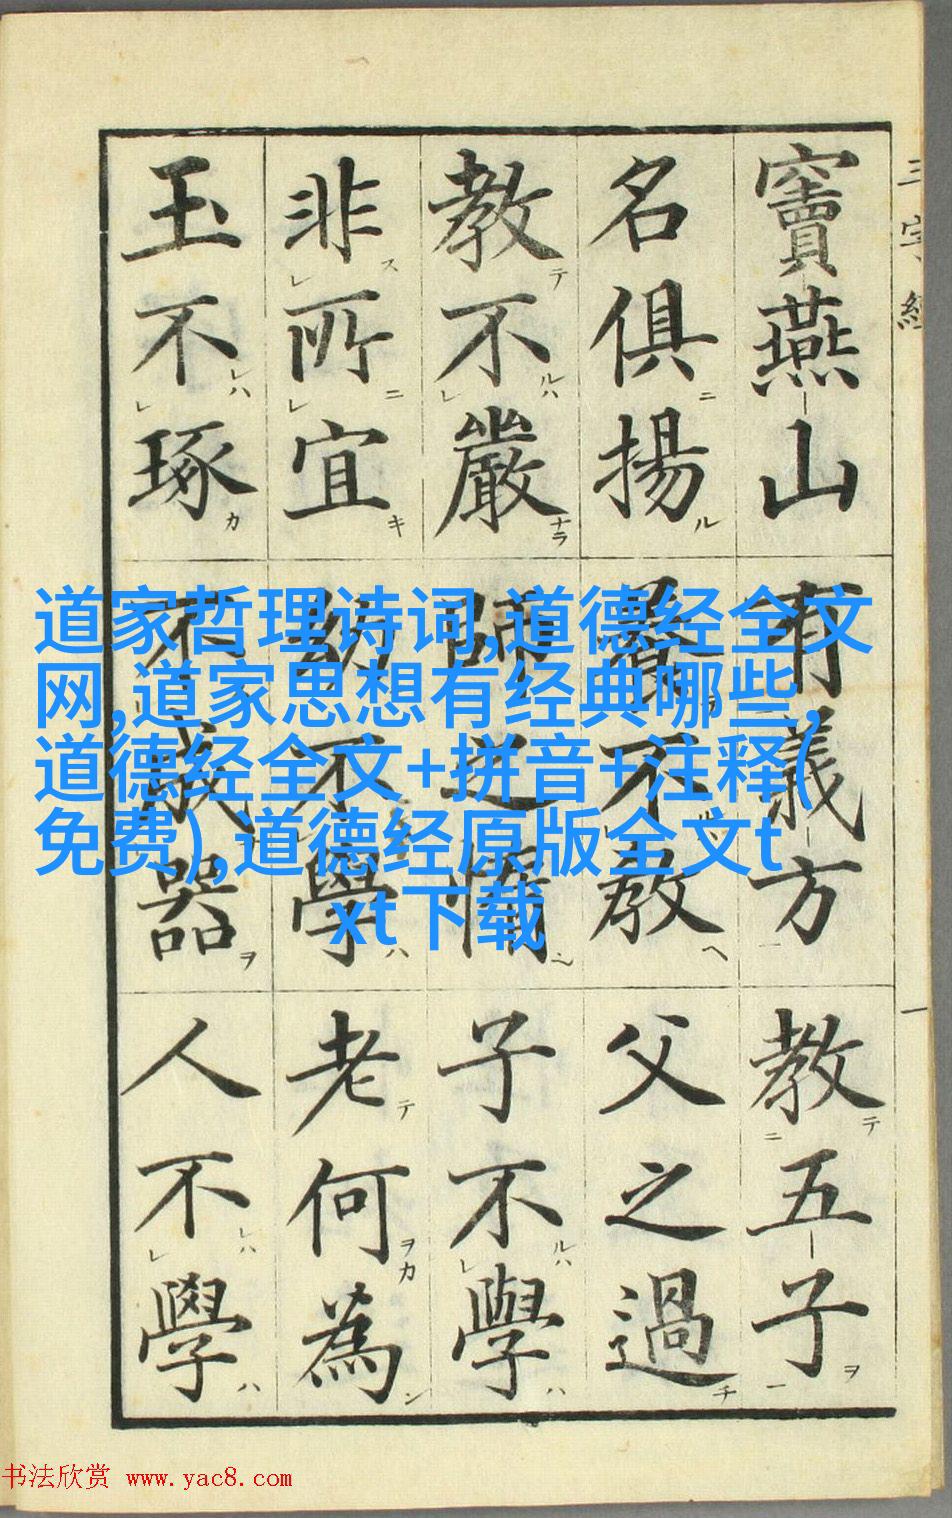 三字經 一
竇燕山有義方教五子
名俱揚養不教父之過
教不嚴師之惰子不學
非所宜幼不學老何為
玉不琢不成器人不學
道家哲理诗词,道德经全文
网,道家思想有经典哪些,
道德经全文+拼音+注释(
免费),道德经原版全文t
xt下载
书法欣赏 www.yac8.com